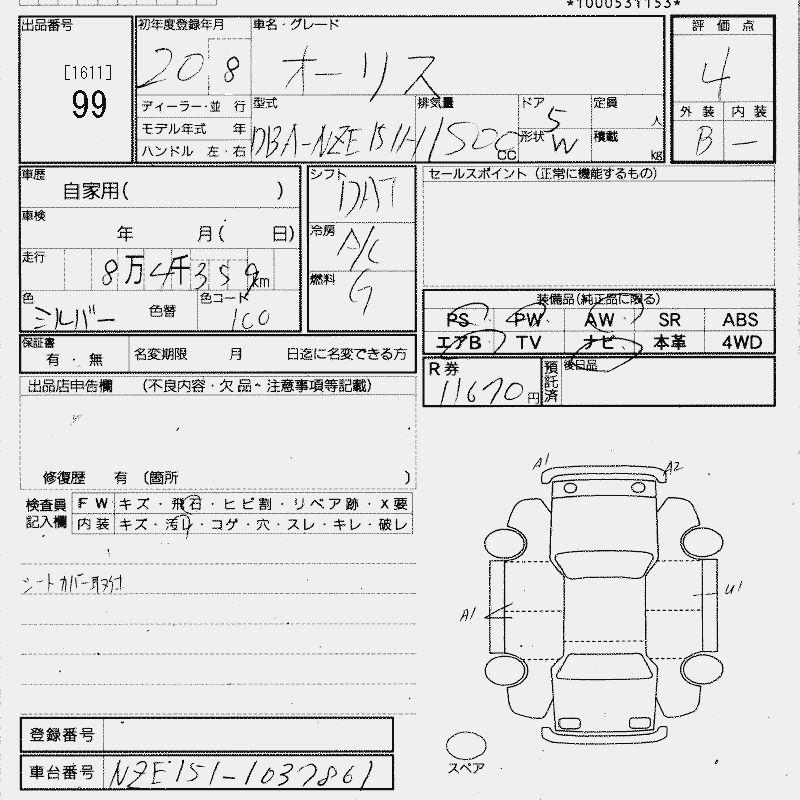 *1000531153*
出品番号
[1611]
99
初年度登録年月
20 8
車名・グレード
オーリス
評価点
4
外装 内装
B ―
ディーラー・並行
モデル年式 年
ハンドル 左・右
型式
DBA-NZE151H
排気量
1500cc
ドア
5
形状
W
定員
人
積載
kg
車歴
自家用( )
車検
年 月( 日)
走行
8万4千359km
色
シルバー
色替
色コード
1C0
シフト
DAT
冷房
A/C
燃料
G
セールスポイント (正常に機能するもの)
装備品(純正品に限る)
PS PW AW SR ABS
エアB TV ナビ 本革 4WD
保証書
有・無
名変期限 月 日迄に名変できる方
R券
11670円
預託済
後日品
出品店申告欄 (不良内容・欠品・注意事項等記載)
修復歴 有 (箇所 )
検査員記入欄
FW キズ・飛石・ヒビ割・リペア跡・X要
内装 キズ・汚レ・コゲ・穴・スレ・キレ・破レ
シートカバー取付
A1 A2
A1
U1
スペア
登録番号
車台番号
NZE151-1037861